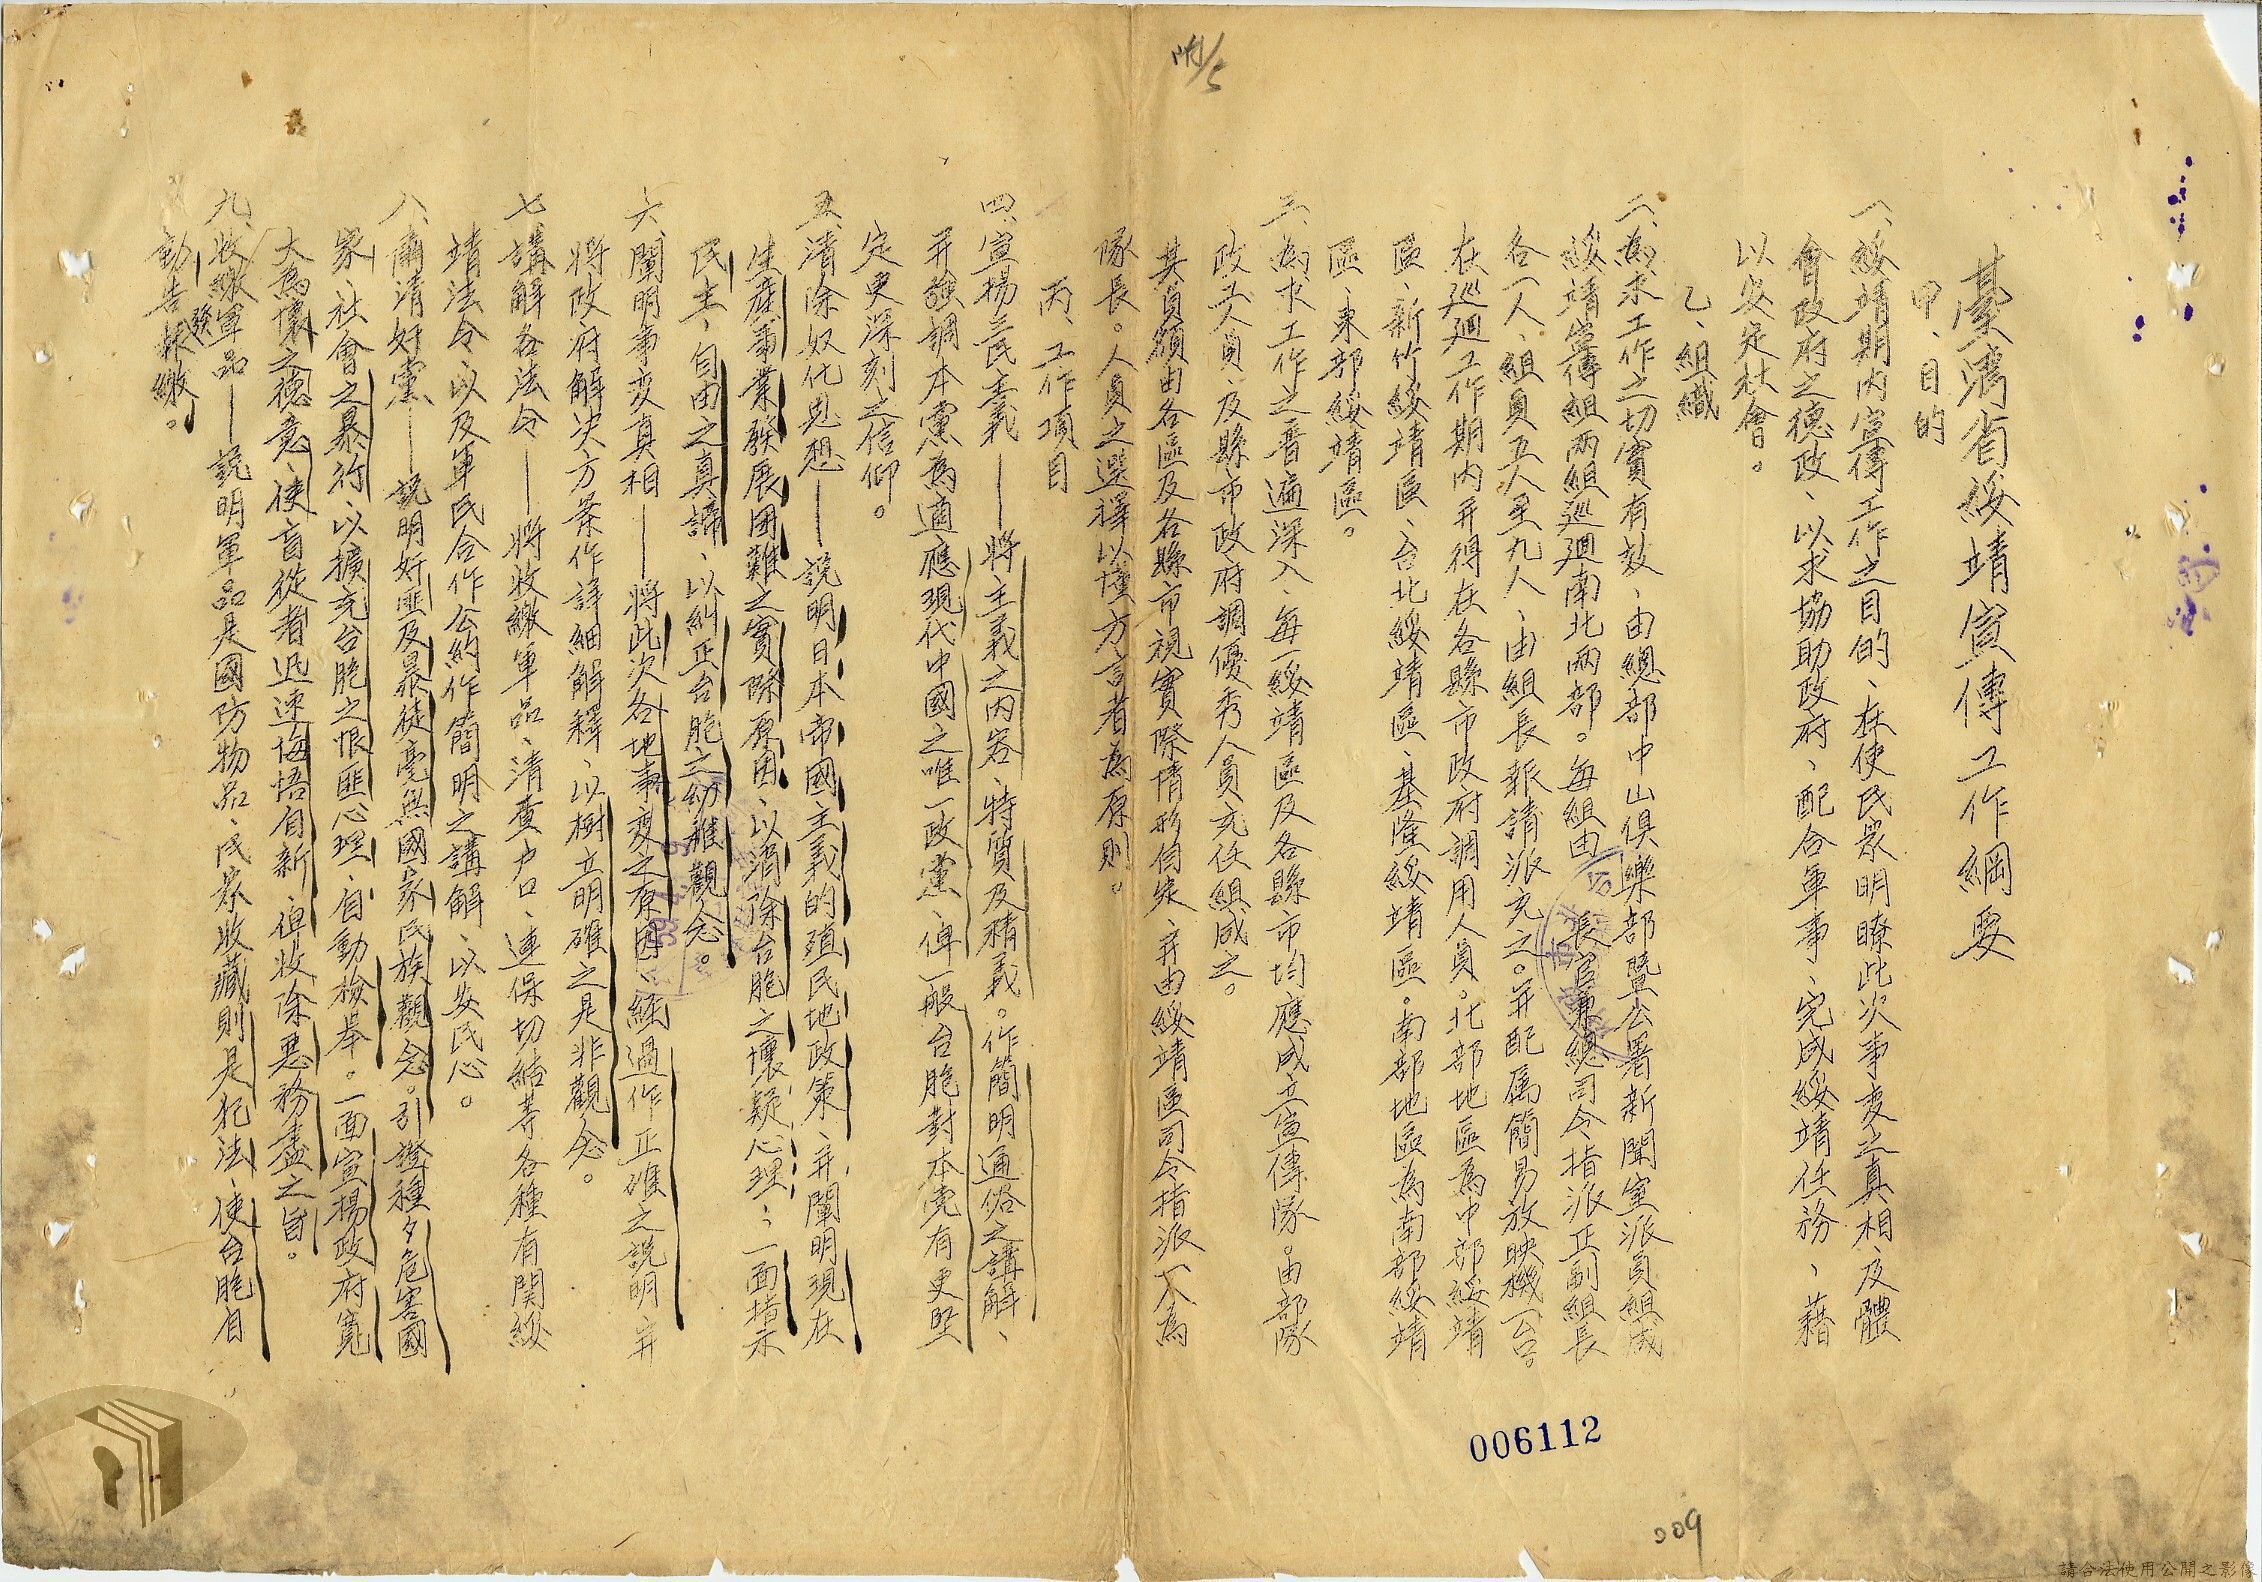 附/5
臺灣省綏靖宣傳工作綱要
甲、目的
一、綏靖期內宣傳工作之目的、在使民眾明瞭此次事變之真相、及體
會政府之德政、以求協助政府、配合軍事、完成綏靖任務、藉
以安定社會。
乙、組織
二、為求工作之切實有效、由總部中山俱樂部暨公署新聞室派員組成
綏靖宣傳組兩組巡迴南北兩部。每組由 長官兼總司令指派正副組長
各一人、組員五人至九人、由組長報請派充之。并配屬簡易放映機一台。
在巡迴工作期內并得在各縣市政府調用人員。北部地區為中部綏靖
區、新竹綏靖區、台北綏靖區、基隆綏靖區。南部地區為南部綏靖
區、東部綏靖區。
三、為求工作之普遍深入、每一綏靖區及各縣市均應成立宣傳隊。由部隊
政工人員、及縣市政府調優秀人員充任組成之。
其員額由各區及各縣市視實際情形自定、并由綏靖區司令指派一人為
隊長。人員之選擇以懂方言者為原則。
丙、工作項目
四、宣揚三民主義——將主義之內容、特質及精義。作簡明通俗之講解、
并強調本黨為適應現代中國之唯一政黨、俾一般台胞對本党有更堅
定更深刻之信仰。
五、清除奴化思想——說明日本帝國主義的殖民地政策、并闡明現在
生產事業發展困難之實際原因、以消除台胞之懷疑心理；一面指示
民主、自由之真諦、以糾正台胞之幼稚觀念。
六、闡明事变真相——將此次各地事变之原因、經過作正確之說明并
將政府解決方案作詳細解釋、以樹立明確之是非觀念。
七、講解各法令——將收繳軍品、清查户口、連保切結等各種有関綏
靖法令、以及軍民合作公約作簡明之講解、以安民心。
八、肅清奸黨——說明奸匪及暴徒毫無國家民族觀念。引證種夕危害國
家、社會之暴行、以擴充台胞之恨匪心理、自動檢舉。一面宣揚政府寬
大為懷之德意、使盲從者迅速悔悟自新、俾收除惡務盡之旨。
九、收繳軍品——說明軍品是國防物品、民眾收藏則是犯法、使台胞自
動告發報繳。
006112
009
請合法使用公開之影像